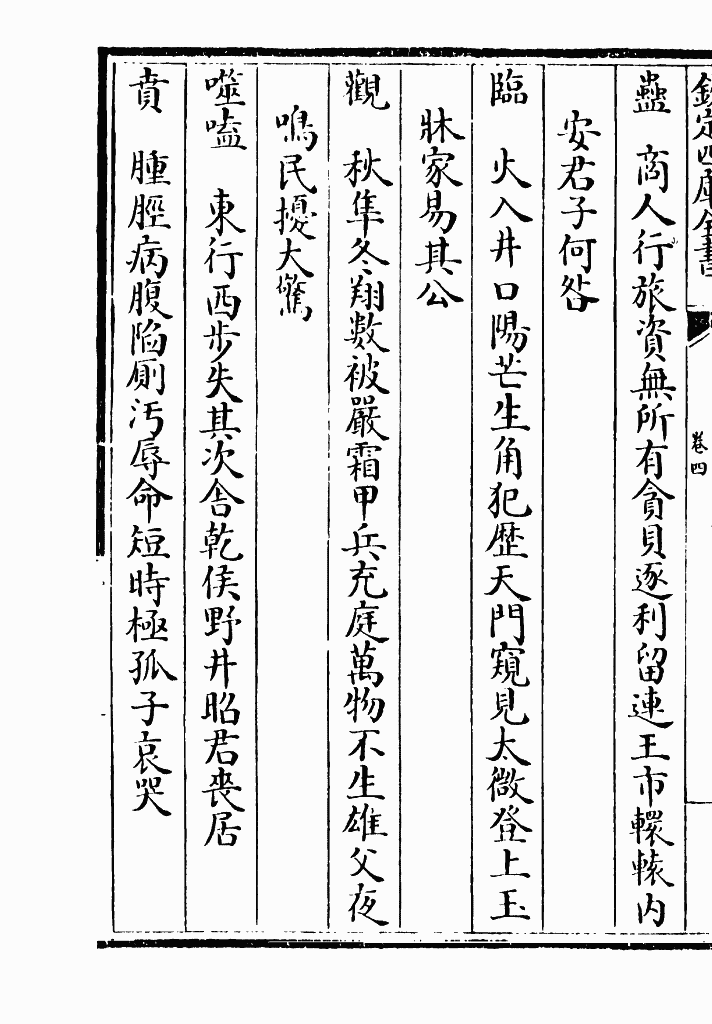 欽定四庫全書
卷四
蠱　商人行旅資無所有貪貝逐利留連王市轘轅内
安君子何咎
臨　火入井口陽芒生角犯歴天門窺見太微登上玉
牀家易其公
觀　秋隼冬翔數被嚴霜甲兵充庭萬物不生雄父夜
鳴民擾大驚
噬嗑　東行西步失其次舍乾侯野井昭君喪居
賁　腫脛病腹陷厠汚辱命短時極孤子哀哭